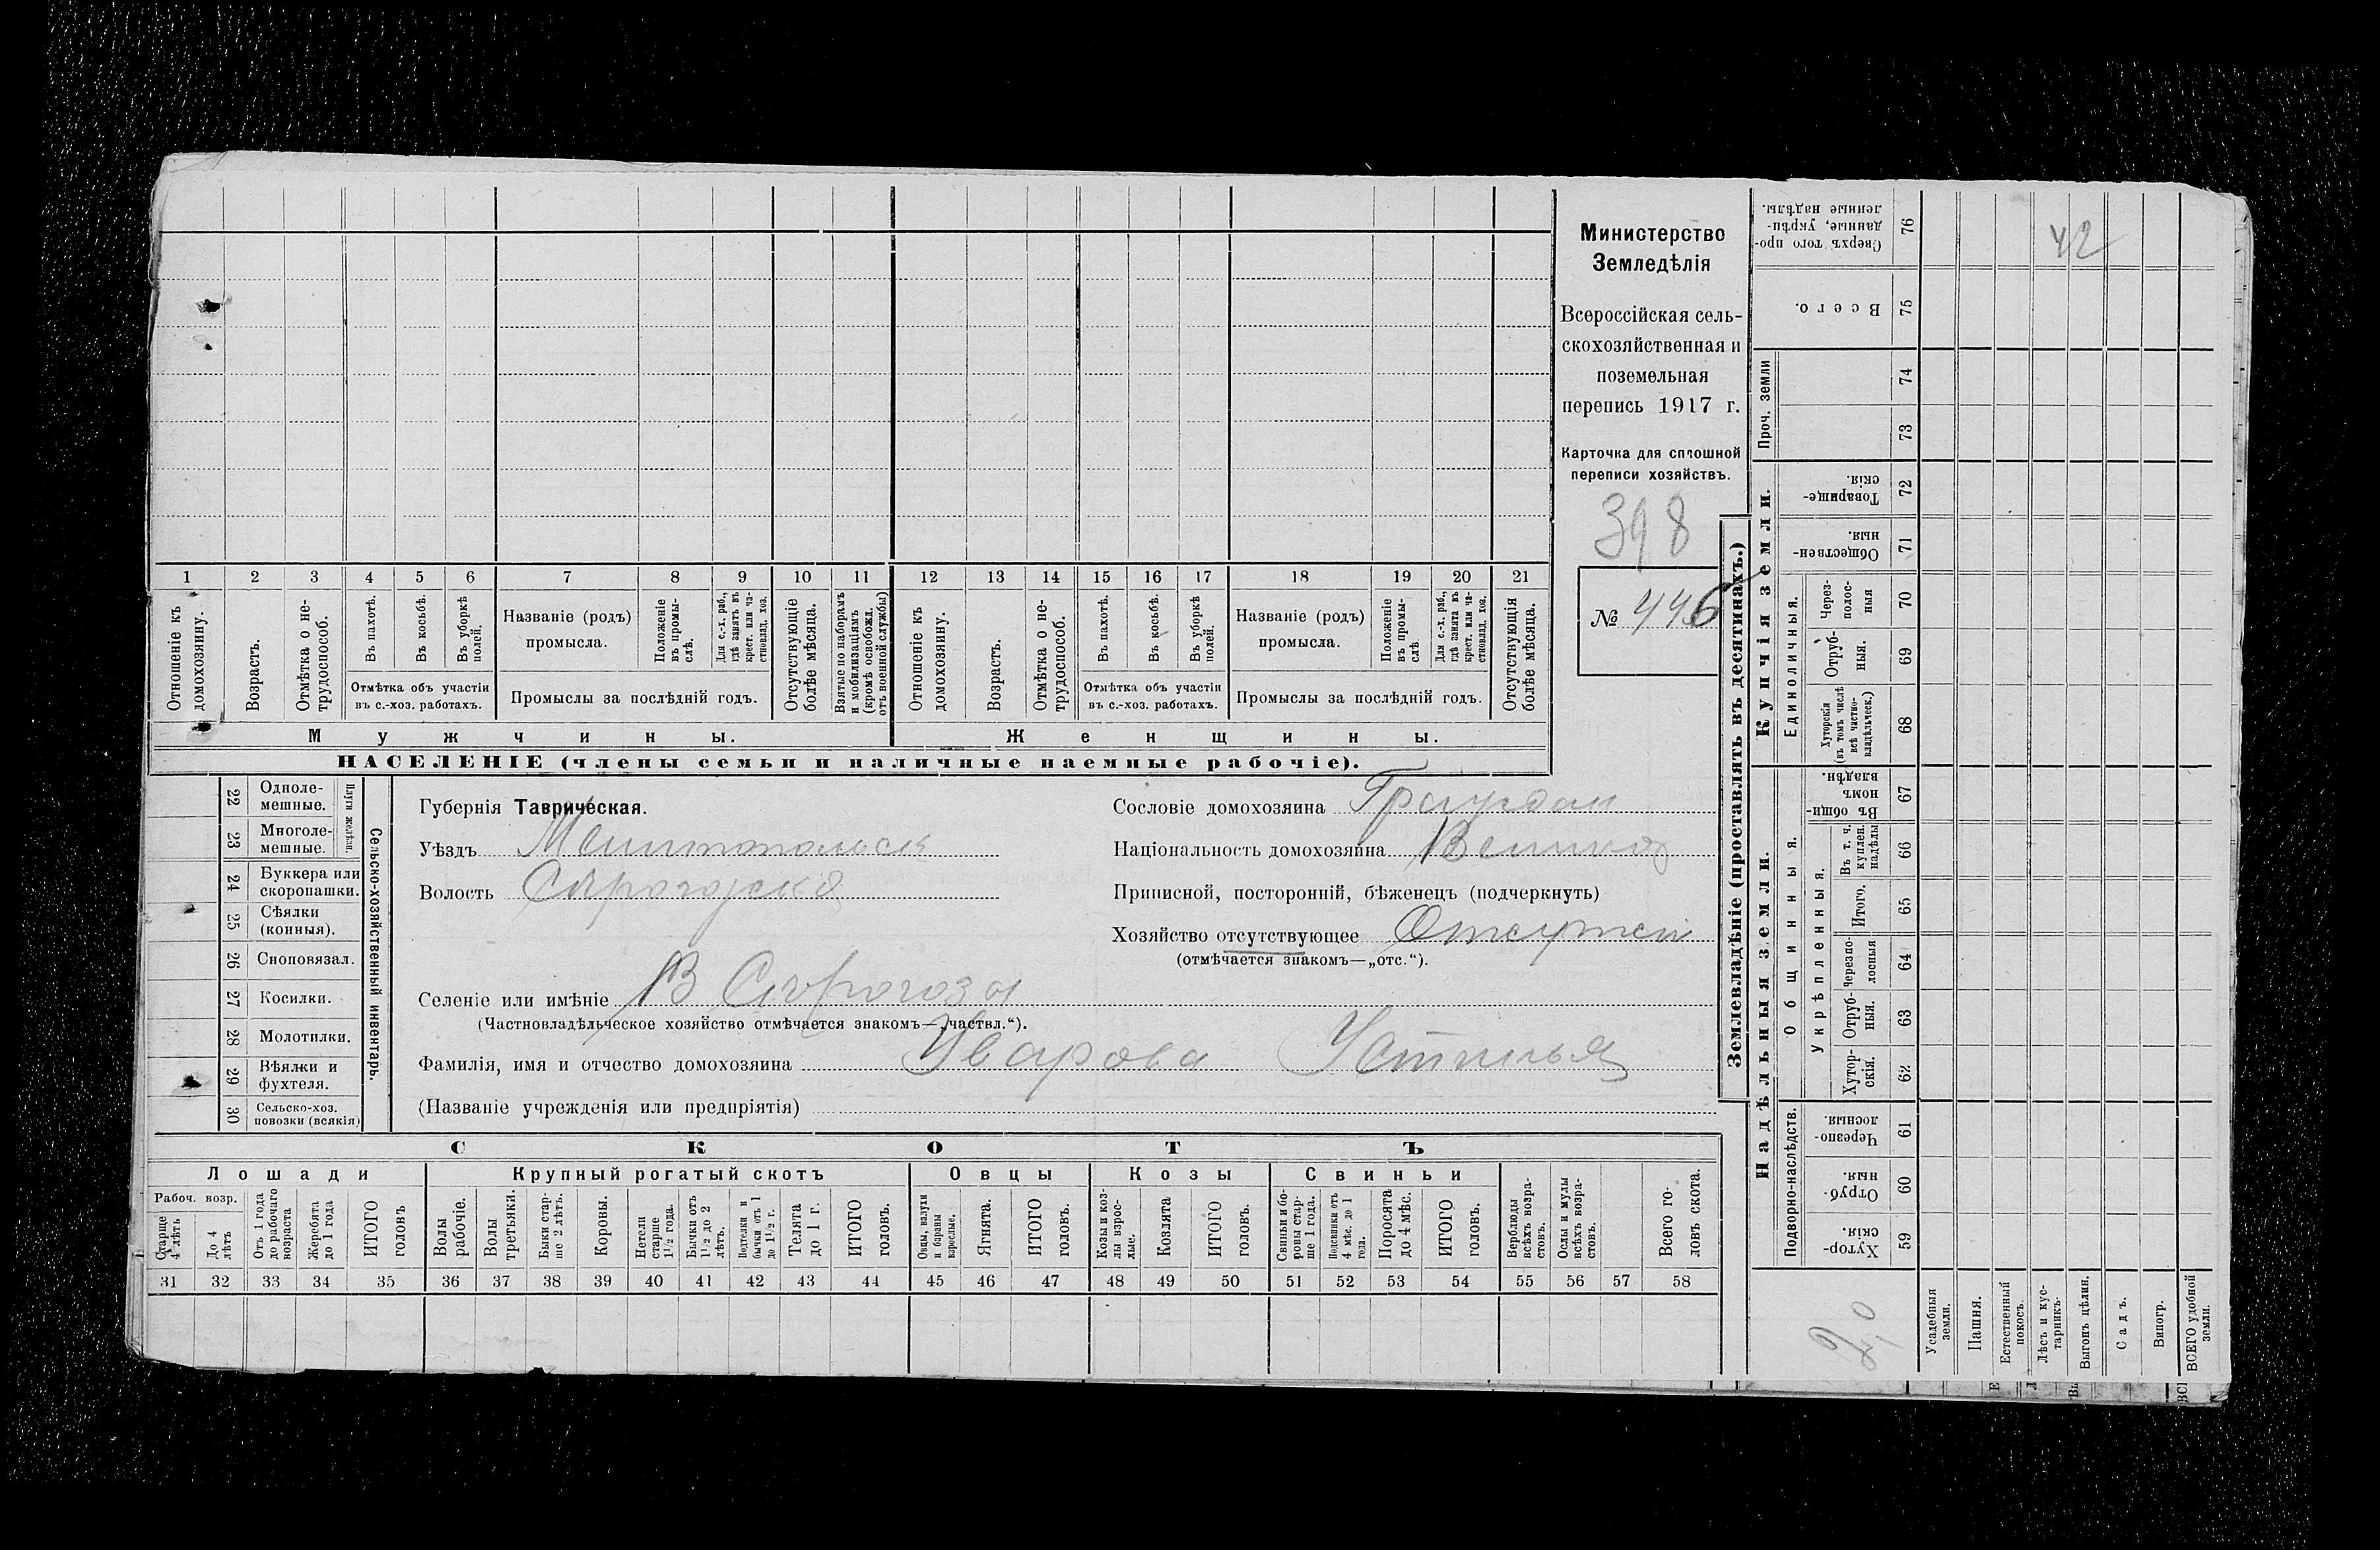 1 2 3 4 5 6 7 8 9 10 11 12 13 14 15 16 17 18 19 20 21
Отношеніе къ домохозяину.
Возрастъ.
Отмѣтка о не-
трудоспособ.
Въ пахотѣ.
Въ косьбѣ.
Въ уборкѣ
полей.
Отмѣтка объ участіи
въ с.-хоз. работахъ.
Названіе (родъ)
промысла.
Положеніе
въ промы-
слѣ.
Для с.-х. раб.,
гдѣ занятъ въ
крест. или ча-
стновлад. хоз.
Промыслы за послѣдній годъ.
Отсутствующіе
болѣе мѣсяца.
Взятые по наборамъ
и мобилизаціямъ
(кромѣ освобожд.
отъ военной службы)
Отношеніе къ
домохозяину.
Возрастъ.
Отмѣтка о не-
трудоспособ.
Въ пахотѣ.
Въ косьбѣ.
Въ уборкѣ
полей.
Отмѣтка объ участіи
въ с.-хоз. работахъ.
Названіе (родъ)
промысла.
Положеніе
въ промы-
слѣ
Для с.-х. раб.,
гдѣ занята въ
крест. или ча-
стновлад. хоз.
Промыслы за послѣдній годъ.
Отсутствующія
болѣе мѣсяца.
Мужчины.
Женщины.
НАСЕЛЕНІЕ (члены семьи и наличные наемные рабочіе).
Министерство
Земледѣлія
Всероссійская сель-
скохозяйственная и
поземельная
перепись 1917 г.
Карточка для сплошной
переписи хозяйствъ.
398
№ 446
22 Одноле-
мешные.
23 Многоле-
мешные.
Плуги желѣзн.
24 Буккера или
скоропашки.
25 Сѣялки
(конныя).
26 Сноповязал.
27 Косилки.
28 Молотилки.
29 Вѣялки и
фухтеля.
30 Сельско-хоз.
повозки (всякія)
Сельско-хозяйственный инвентарь.
Губернія Таврическая.
Уѣздъ
Волость
Селеніе или имѣніе
(Частновладѣльческое хозяйство отмѣчается знакомъ—„частвл.“).
Фамилія, имя и отчество домохозяина Уварова Устинья
(Названіе учрежденія или предпріятія)
Сословіе домохозяина
Національность домохозяина
Приписной, посторонній, бѣженецъ (подчеркнуть)
Хозяйство отсутствующее
(отмѣчается знакомъ—„отс.“).
СКОТЪ
Лошади
Крупный рогатый скотъ
Овцы
Козы
Свиньи
Рабоч. возр.
Старше
4 лѣтъ
До 4
лѣтъ
Отъ 1 года
до рабочаго
возраста
Жеребята
до 1 года
ИТОГО
головъ
Волы
рабочіе.
Волы
третьяки.
Быки стар-
ше 2 лѣтъ.
Коровы.
Нетели
старше
1½ года.
Бычки отъ
1½ до 2
лѣтъ.
бычки отъ 1
до 1½ г.
Телята
до 1 г.
ИТОГО
головъ.
Овцы, валухи
и бараны
взрослые.
Ягнята.
ИТОГО
головъ.
Козы и коз-
лы взрос-
лые.
Козлята
ИТОГО
головъ.
Свиньи и бо-
ровы стар-
ше 1 года.
Подсвинки отъ
4 мѣс. до 1
года.
Поросята
до 4 мѣс.
ИТОГО
головъ.
Верблюды
всѣхъ возра-
стовъ.
Ослы и мулы
всѣхъ возра-
стовъ.
Всего го-
ловъ скота.
31 32 33 34 35 36 37 38 39 40 41 42 43 44 45 46 47 48 49 50 51 52 53 54 55 56 57 58
Землевладѣніе (проставлять въ десятинахъ.)
Купчія земли.
Надѣльныя земли.
Сверхъ того про-
данные, укрѣп-
ленные надѣлы.
76
Всего.
75
Проч. земли
74
73
Товарище-
скія.
72
Обществен-
ныя.
71
Единоличныя.
Через-
полос-
ныя
70
Отруб-
ныя.
69
Хуторскія
(въ томъ числѣ
всѣ частно-
владѣльческ.)
68
Общинныя.
Въ общи-
номъ
владѣн.
67
Укрѣпленныя.
Въ т. ч.
куплен.
надѣлы
66
Итого.
65
Черезпо-
лосныя
64
Отруб-
ныя.
63
Хутор-
скія.
62
Подворно-наслѣдств.
Черезпо-
лосныя.
61
Отруб-
ныя.
60
Хутор-
скія.
59
42
Усадебныя
земли.
Пашня.
Естественный
покосъ.
Лѣсъ и кус-
тарникъ.
Выгонъ цѣлин.
Садъ.
Виногр.
ВСЕГО удобной
земли.